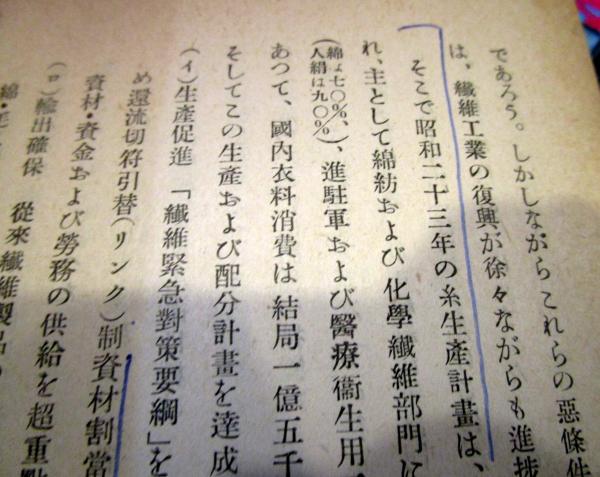 であろう。しかしながらこれらの惡條件
は、纖維工業の復興が徐々ながらも進捗
そこで昭和二十三年の糸生產計畫は、
れ、主として綿紡および化學纖維部門に
(綿は七〇%、人絹は九〇%)、進駐軍および醫療衞生用
あつて、國內衣料消費は結局一億五千
そしてこの生產および配分計畫を達成
(イ)生產促進 「纖維緊急對策要綱」を
め還流切符引替(リンク)制資材割當
資材・資金および勞務の供給を超重點
(ロ)輸出確保 從來纖維製品の